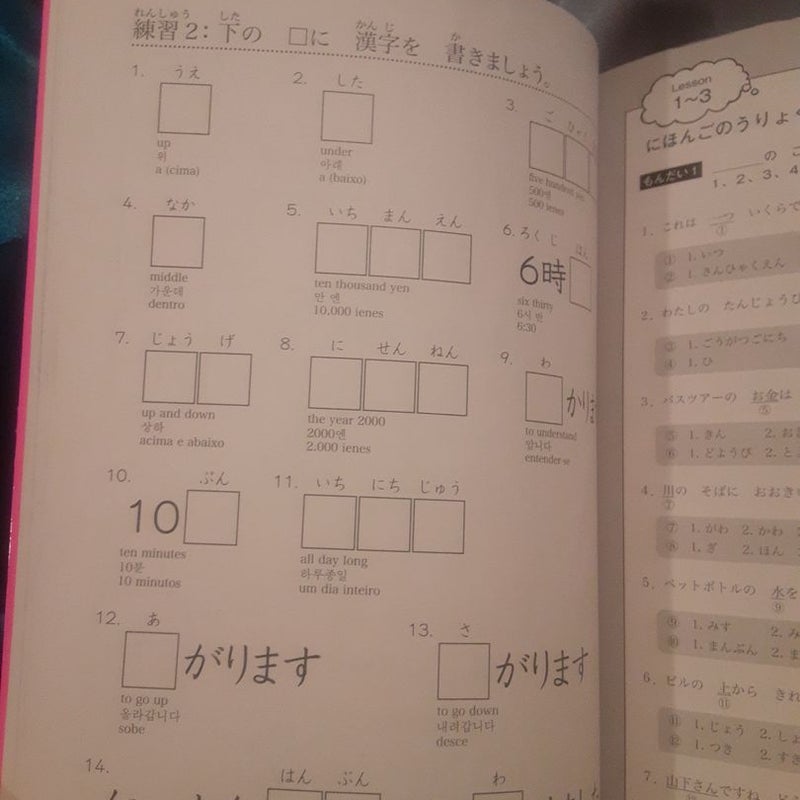 練習2：下の □に 漢字を 書きましょう。
れんしゅう した かんじ か
1. うえ
up
위
a (cima)
2. した
under
아래
a (baixo)
3. ご ひゃく
five hundred yen
500엔
500 ienes
4. なか
middle
가운데
dentro
5. いち まん えん
ten thousand yen
만 엔
10.000 ienes
6. ろく じ はん
6時
six thirty
6시 반
6:30
7. じょう げ
up and down
상하
acima e abaixo
8. に せん ねん
the year 2000
2000엔
2.000 ienes
9. わ
かりま
to understand
압니다
entender-se
10. ぷん
10
ten minutes
10분
10 minutos
11. いち にち じゅう
all day long
하루종일
um dia inteiro
12. あ
がります
to go up
올라갑니다
sobe
13. さ
がります
to go down
내려갑니다
desce
14.
はん ぶん
わ
Lesson
1〜3
にほんごのうりょく
もんだい1 の
1、2、3、4
1. これは 一つ いくらで
①
① 1. いつ
② 1. さんびゃくえん
2. わたしの たんじょうび
③ 1. ごうがつごにち
④ 1. ひ
3. バスツアーの お金は
⑤
⑤ 1. きん 2. お
⑥ 1. どようび 2. と
4. 川の そばに おおき
⑦
⑦ 1. がわ 2. かわ
⑧ 1. ぎ 2. ほん
5. ペットボトルの 水を
⑨
⑨ 1. みす 2. み
⑩ 1. まんぷん 2. ま
6. ビルの 上から きれ
⑪
⑪ 1. じょう 2. しょ
⑫ 1. つき 2. すき
7. 山下さんですね